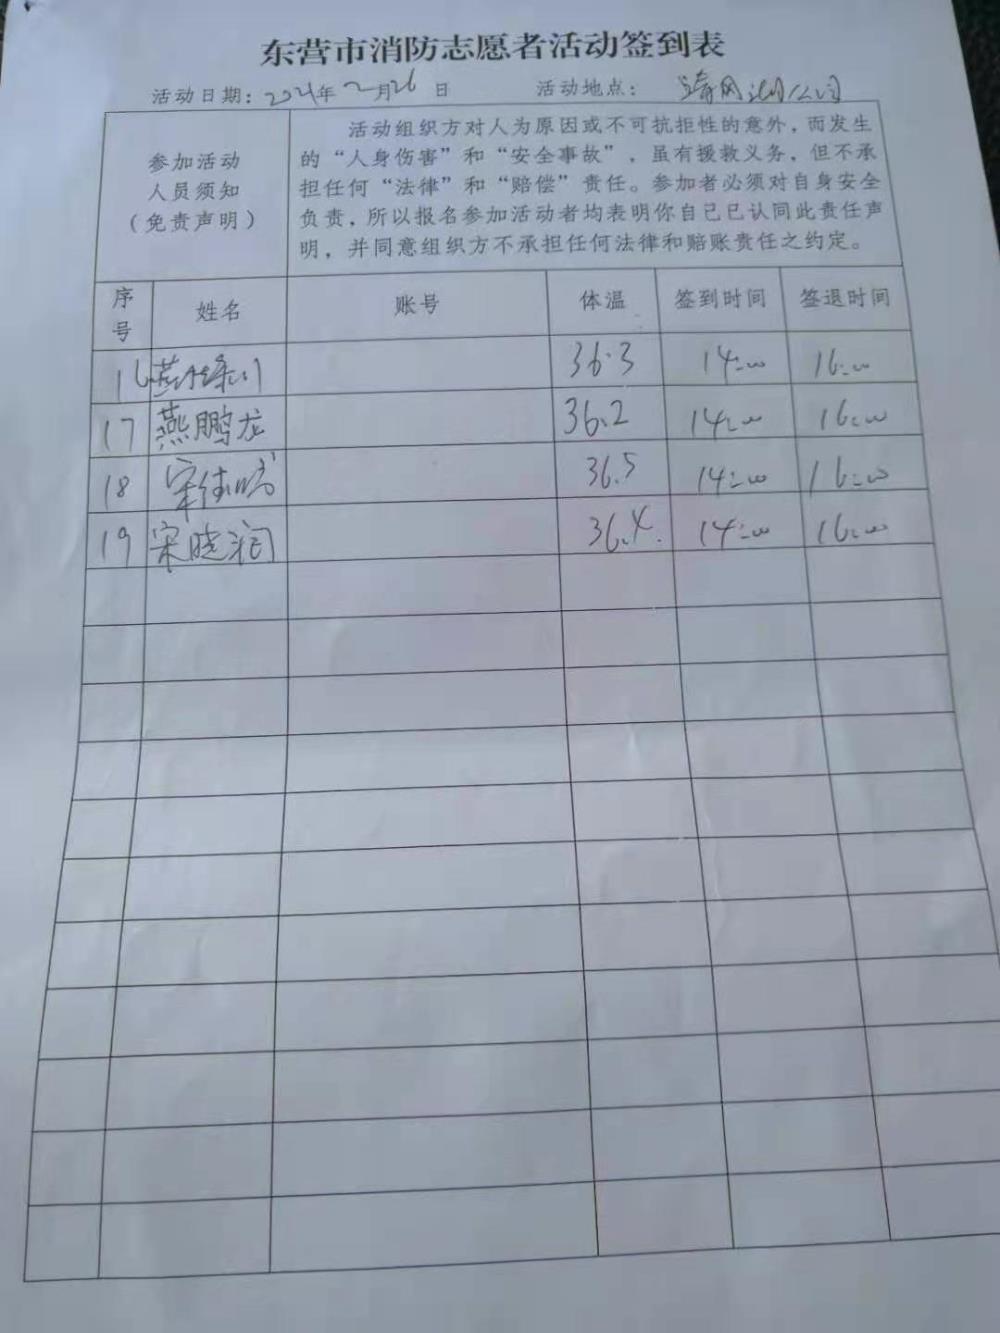 东营市消防志愿者活动签到表
活动日期：2021年2月26日 活动地点： 公司
参加活动
人员须知
（免责声明）
活动组织方对人为原因或不可抗拒性的意外，而发生
的“人身伤害”和“安全事故”，虽有援救义务，但不承
担任何“法律”和“赔偿”责任。参加者必须对自身安全
负责，所以报名参加活动者均表明你自己已认同此责任声
明，并同意组织方不承担任何法律和赔账责任之约定。
序号 姓名 账号 体温 签到时间 签退时间
16 燕 36.3 14:00 16:00
17 燕鹏龙 36.2 14:00 16:00
18 宋佳 36.5 14:00 16:00
19 宋晓润 36.4 14:00 16:00